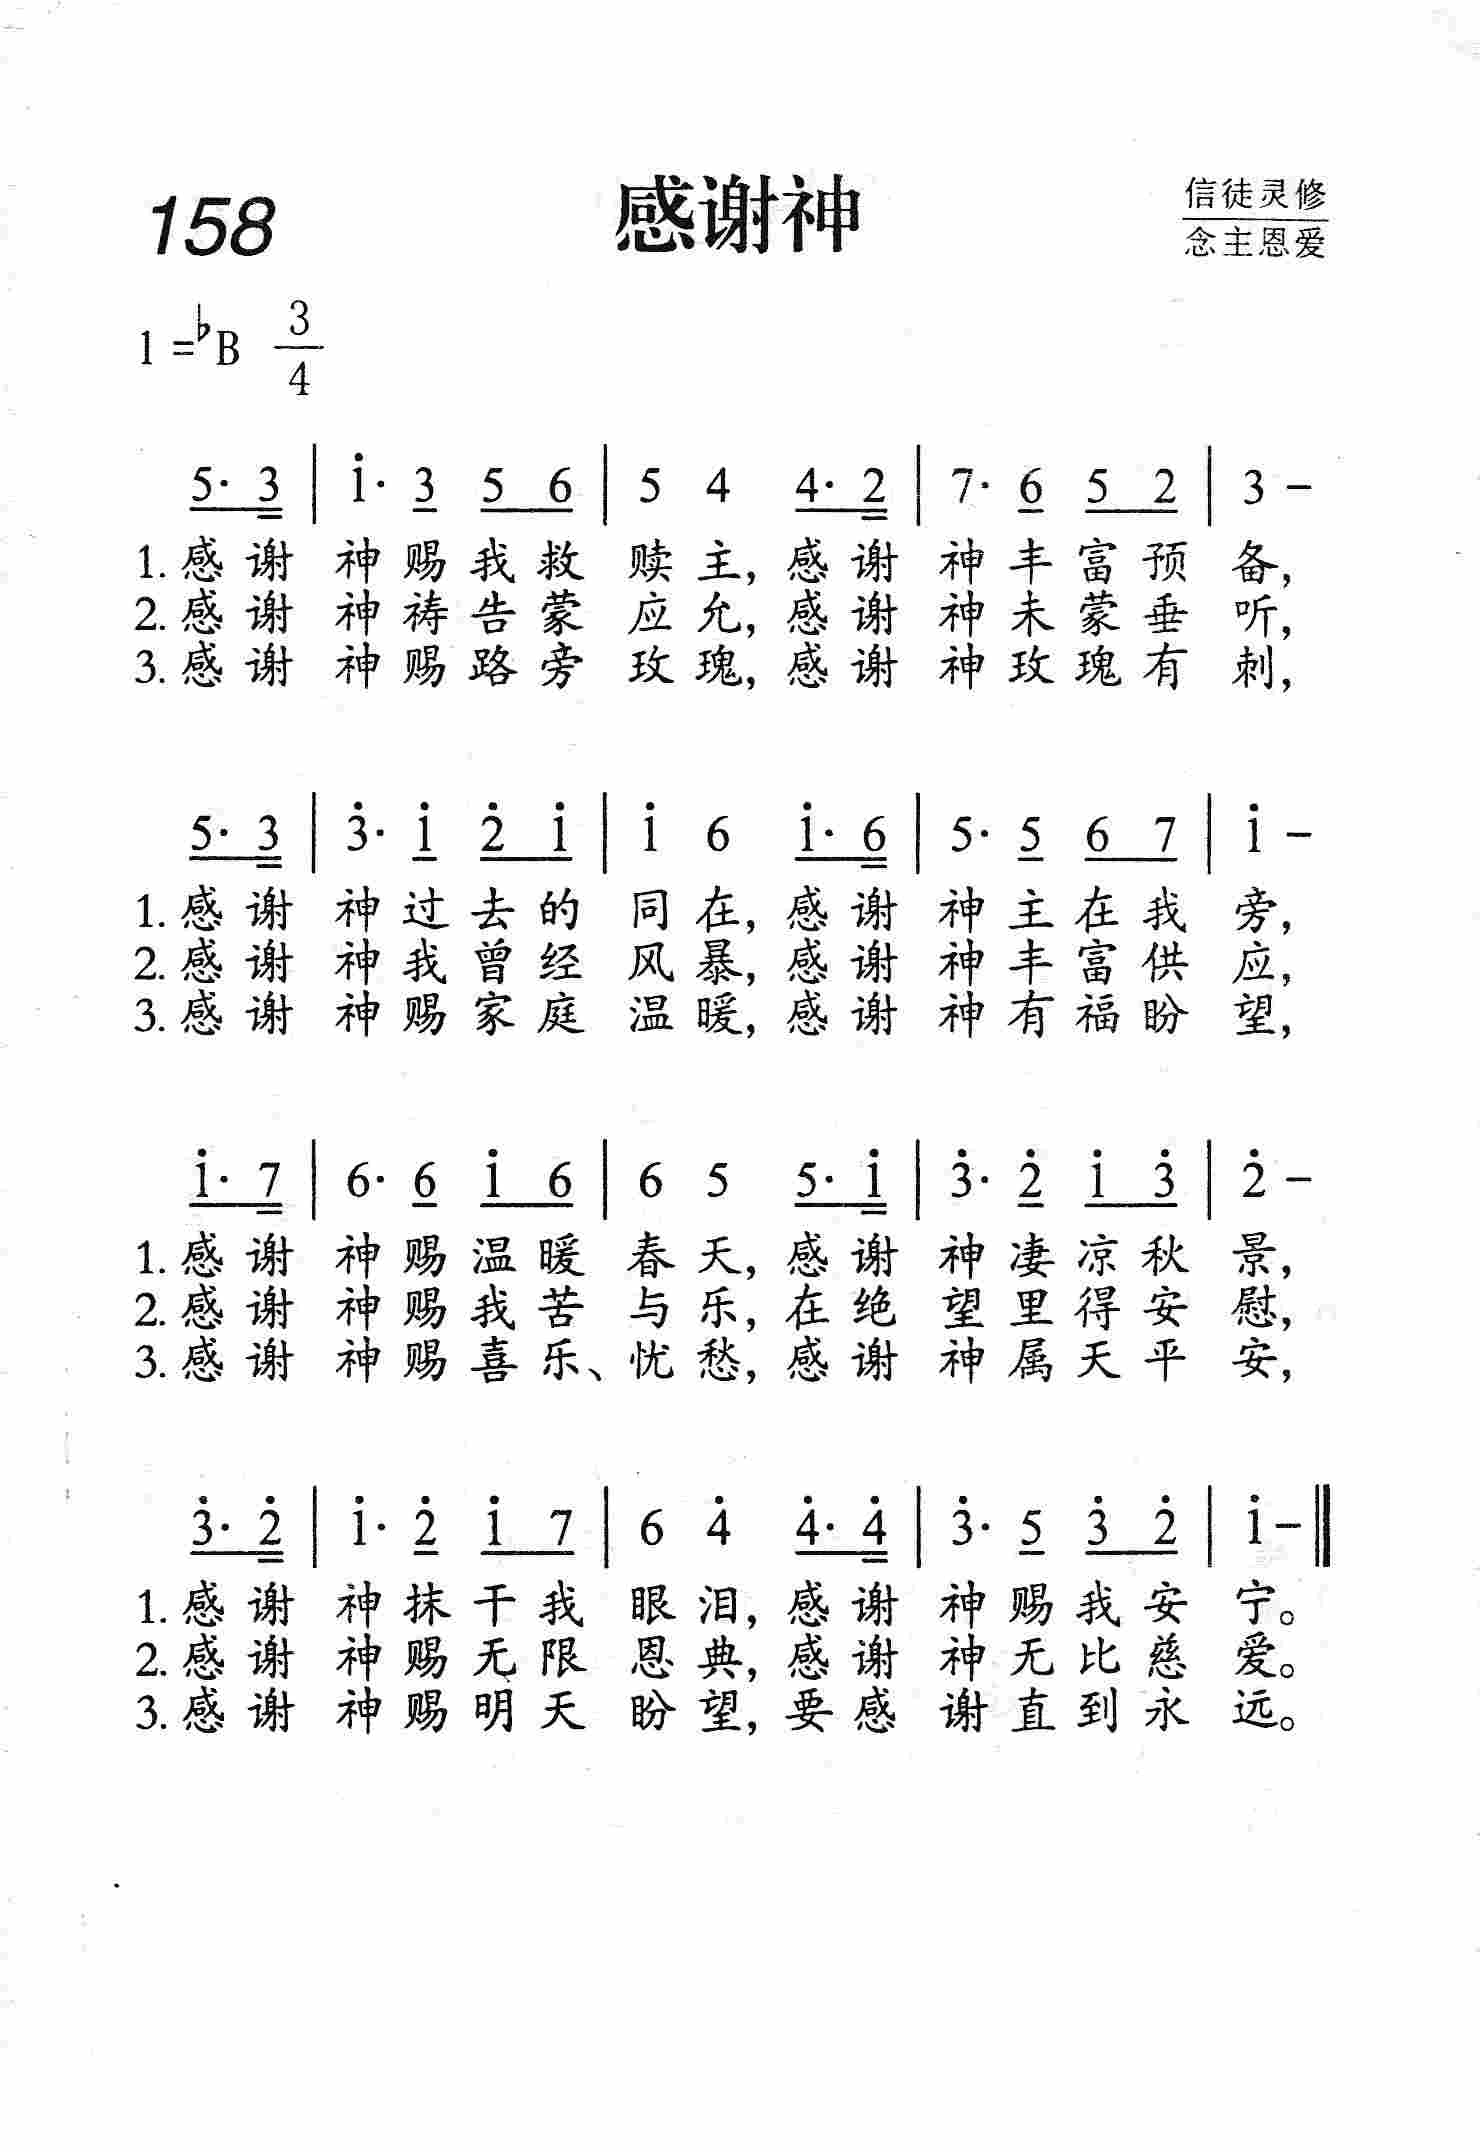 158
感谢神
信徒灵修
念主恩爱
1=♭B 3/4
5· 3 | i· 3 5 6 | 5 4 4· 2 | 7· 6 5 2 | 3 –
1. 感谢 神赐我救 赎主, 感谢 神丰富预 备,
2. 感谢 神祷告蒙 应允, 感谢 神未蒙垂 听,
3. 感谢 神赐路旁 玫瑰, 感谢 神玫瑰有 刺,
5· 3 | 3̇· i 2̇ i | i 6 i· 6 | 5· 5 6 7 | i –
1. 感谢 神过去的 同在, 感谢 神主在我 旁,
2. 感谢 神我曾经 风暴, 感谢 神丰富供 应,
3. 感谢 神赐家庭 温暖, 感谢 神有福盼 望,
i· 7 | 6· 6 i 6 | 6 5 5· i | 3̇· 2̇ i 3̇ | 2̇ –
1. 感谢 神赐温暖 春天, 感谢 神凄凉秋 景,
2. 感谢 神赐我苦 与乐, 在绝 望里得安 慰,
3. 感谢 神赐喜乐、忧愁, 感谢 神属天平 安,
3̇· 2̇ | i· 2̇ i 7 | 6 4̇ 4̇· 4̇ | 3̇· 5 3̇ 2̇ | i – ‖
1. 感谢 神抹干我 眼泪, 感谢 神赐我安 宁。
2. 感谢 神赐无限 恩典, 感谢 神无比慈 爱。
3. 感谢 神赐明天 盼望, 要感 谢直到永 远。